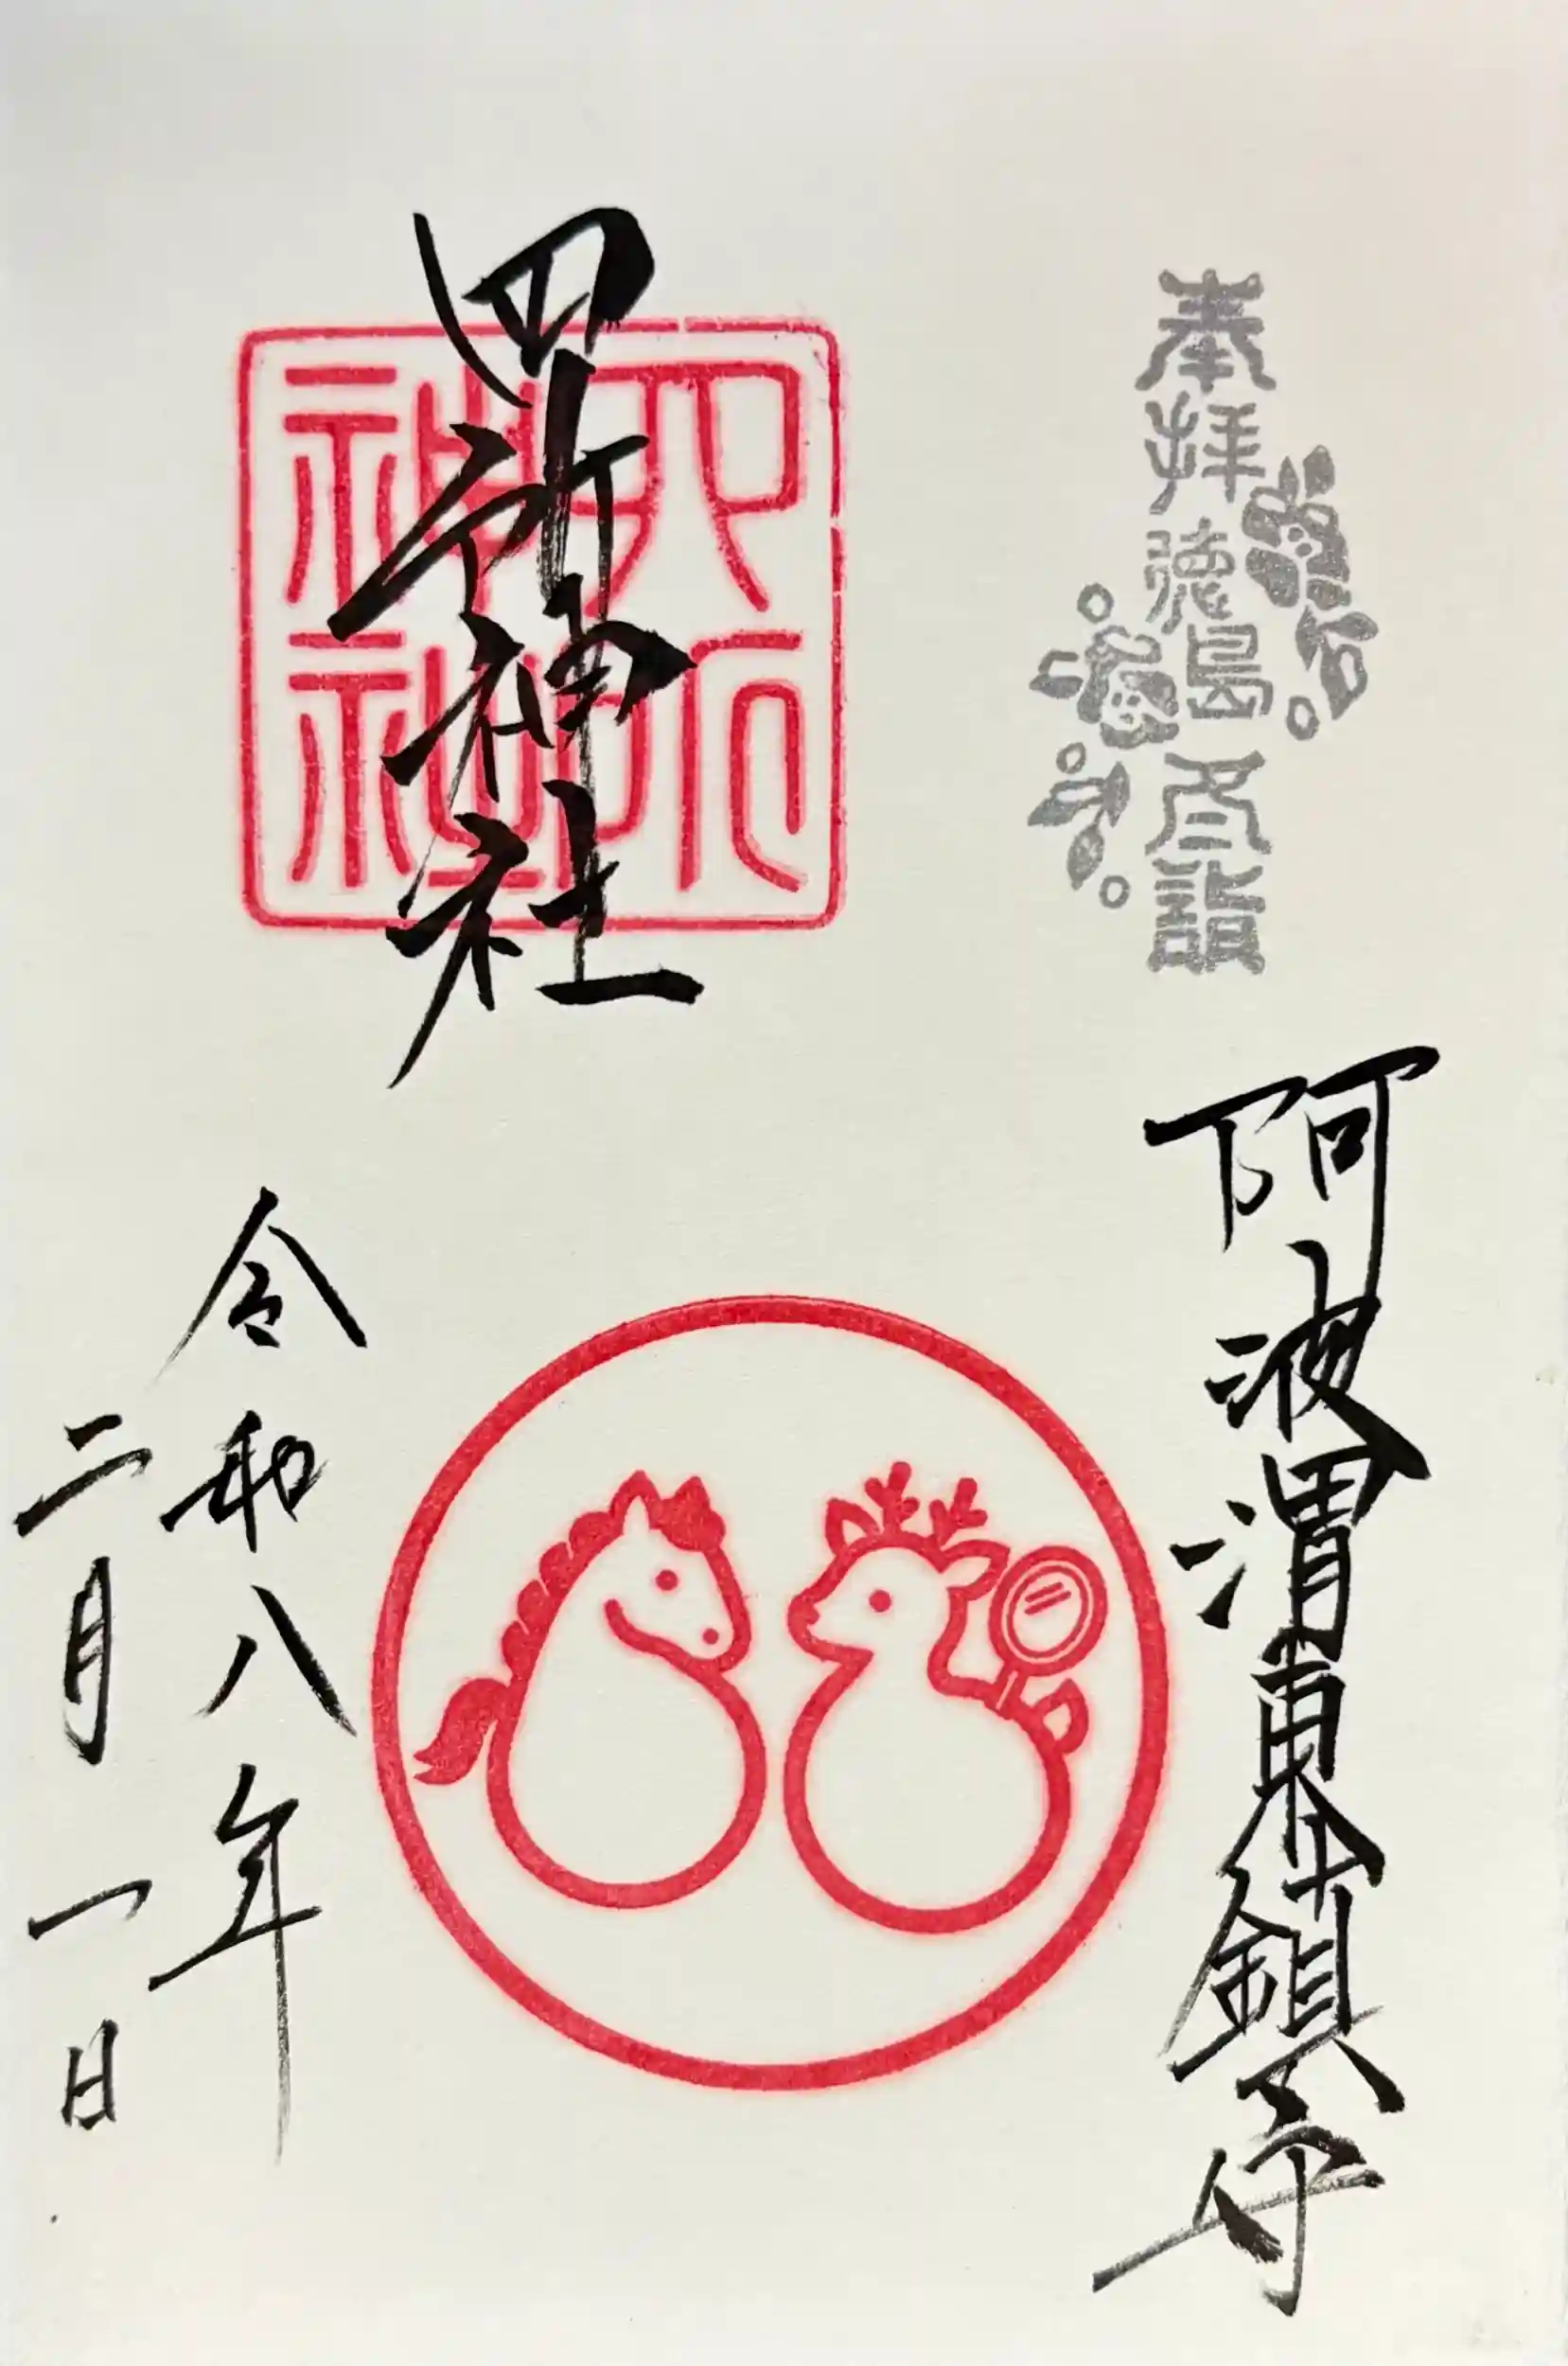 奉拝 徳島冬詣
阿波渭東鎮守
四所神社
四所神社
令和八年
二月一日